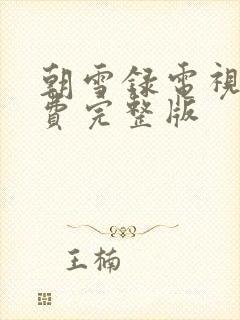 朝雪録電視
費完整版
王楠